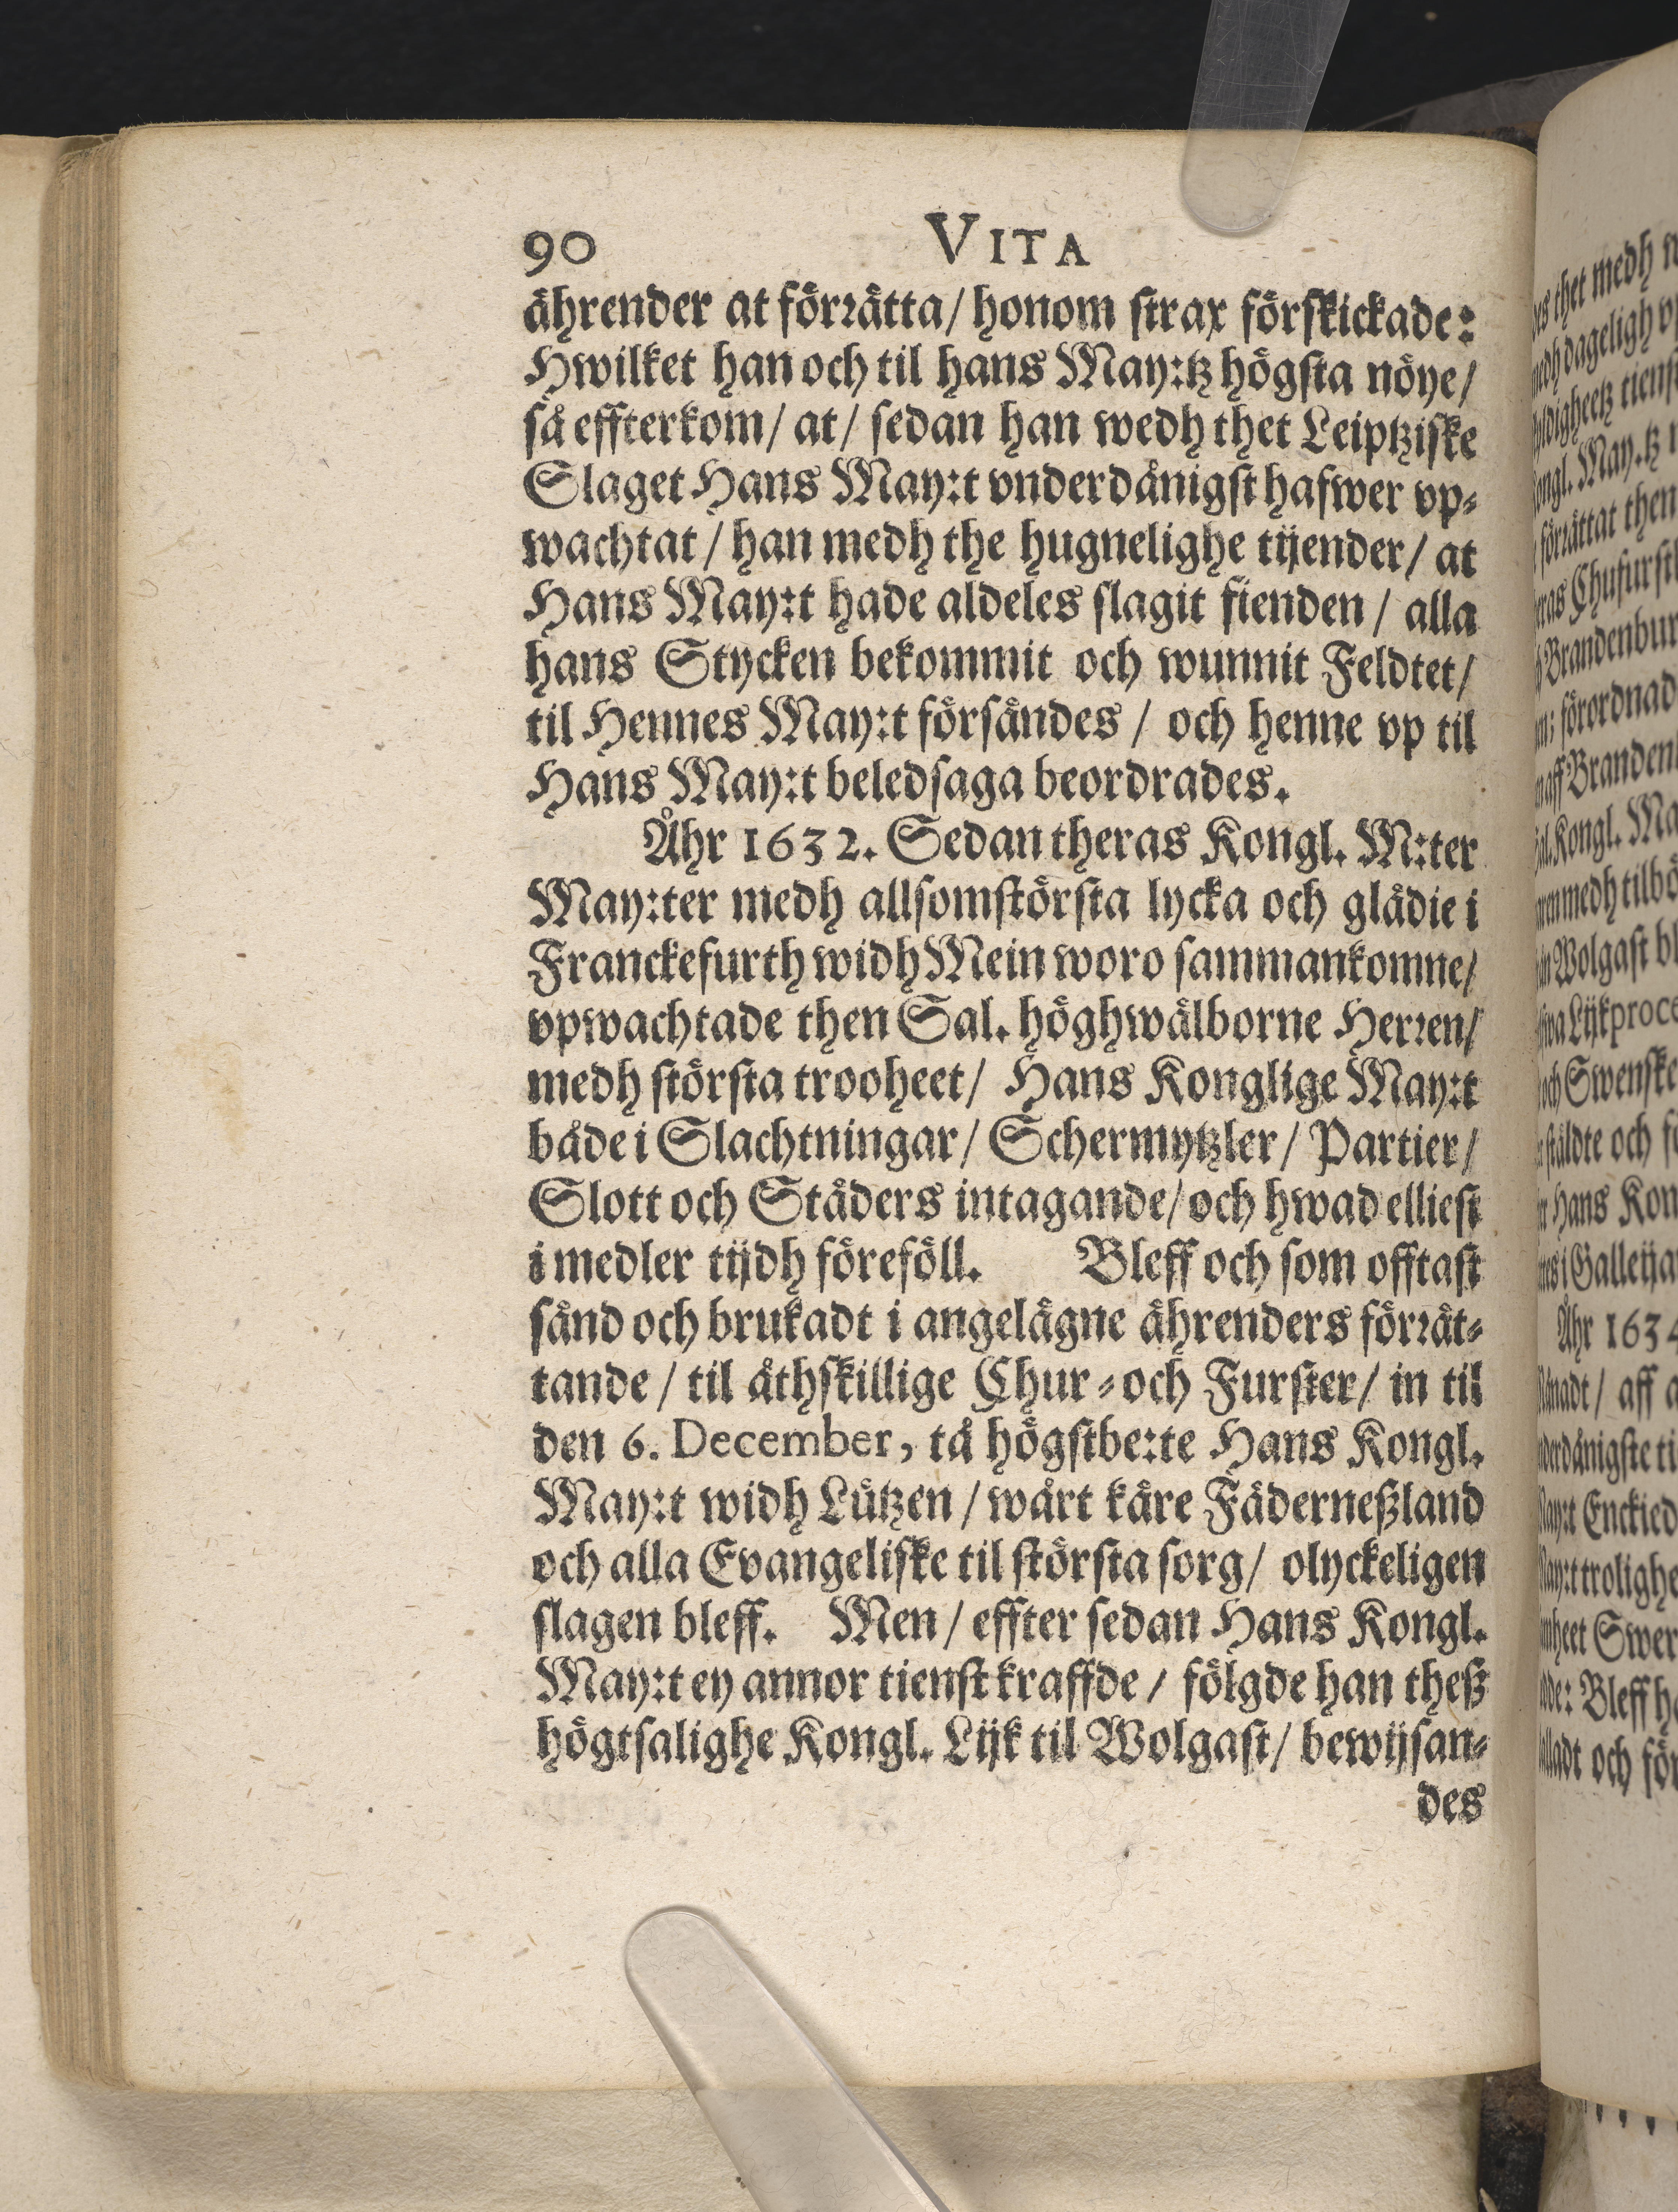 90 VITA
ährender at förrätta/ honom strax förskickade:
Hwilket han och til hans May:tz högsta nöye/
så effterkom/ at/ sedan han wedh thet Leiptziske
Slaget Hans May:t vnderdånigst hafwer vp-
wachtat / han medh the hugnelighe tijender/ at
Hans May:t hade aldeles slagit fienden / alla
hans Stycken bekommit och wunnit Feldtet/
til Hennes May:t försändes / och henne vp til
Hans May:t beledsaga beordrades.
Åhr 1632. Sedan theras Kongl. M:ter
May:ter medh allsomstörsta lycka och glädie i
Franckefurth widh Mein woro sammankomne/
vpwachtade then Sal. höghwälborne Herren/
medh största trooheet/ Hans Konglige May:t
både i Slachtningar/ Schermytzler/ Partier/
Slott och Städers intagande/ och hwad elliest
i medler tijdh föreföll. Bleff och som offtast
sänd och brukadt i angelägne ährenders förrät-
tande / til åthskillige Chur- och Furster/ in til
den 6. December, tå högstbe:te Hans Kongl.
May:t widh Lützen / wårt käre Fäderneßland
och alla Evangeliske til största sorg/ olyckeligen
slagen bleff. Men / effter sedan Hans Kongl.
May:t ey annor tienst kraffde / fölgde han theß
högtsalighe Kongl. Lijk til Wolgast/ bewijsan-
des
thet medh
dageligh
tienst
May.tz
förrättat then
Chufurstl
Brandenbur
förordnad
aff Branden
Kongl. Ma
medh tilbö
Wolgast bl
Lijkproce
och Swenske
ståldte och
Hans Kon
i Galleija
Åhr 1634
aff
Enckied
trolighe
Swer
Bleff
och för